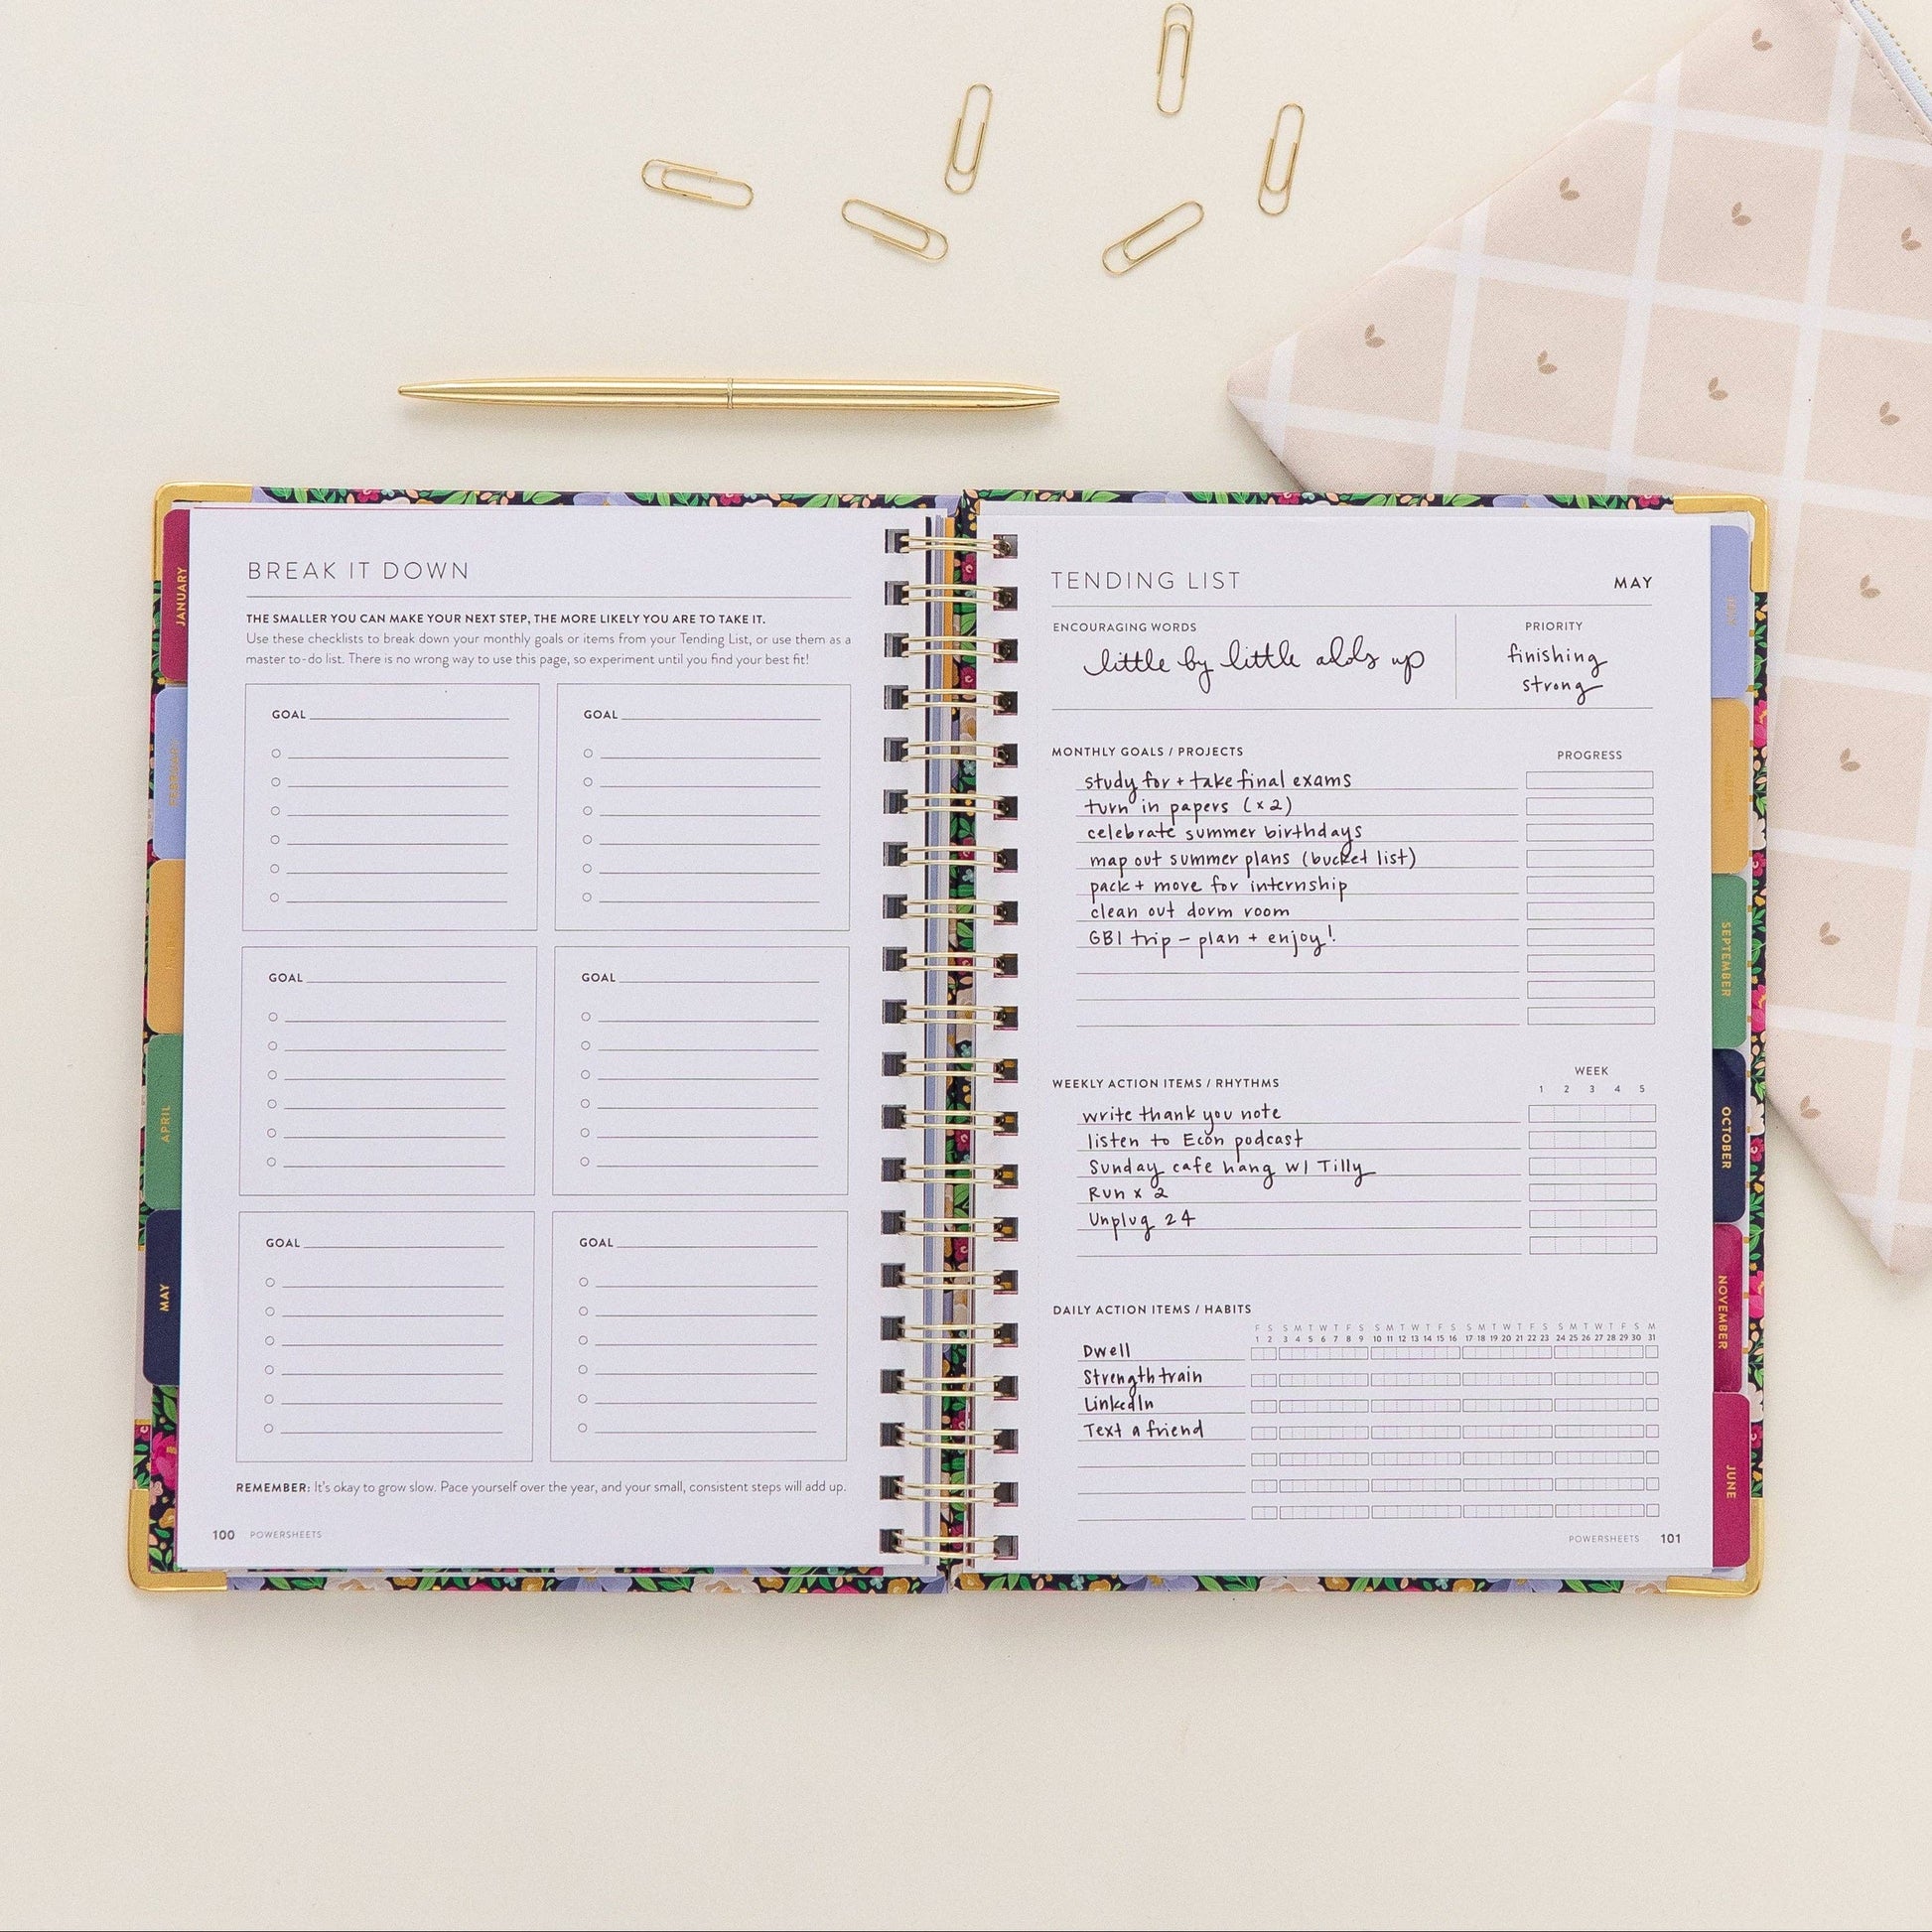 BREAK IT DOWN
THE SMALLER YOU CAN MAKE YOUR NEXT STEP, THE MORE LIKELY YOU ARE TO TAKE IT.
Use these checklists to break down your monthly goals or items from your Tending List, or use them as a
master to-do list. There is no wrong way to use this page, so experiment until you find your best fit!
GOAL
GOAL
GOAL
GOAL
GOAL
GOAL
REMEMBER: It's okay to grow slow. Pace yourself over the year, and your small, consistent steps will add up.
100 POWERSHEETS
JANUARY
FEBRUARY
APRIL
MAY
TENDING LIST MAY
ENCOURAGING WORDS
little by little adds up
PRIORITY
finishing
strong
MONTHLY GOALS / PROJECTS PROGRESS
study for + take final exams
turn in papers (x2)
celebrate summer birthdays
map out summer plans (bucket list)
pack + move for internship
clean out dorm room
GBI trip - plan + enjoy!
WEEKLY ACTION ITEMS / RHYTHMS WEEK
1 2 3 4 5
write thank you note
listen to Econ podcast
Sunday cafe hang w/ Tilly
Run x 2
Unplug 24
DAILY ACTION ITEMS / HABITS
F S S M T W T F S S M T W T F S S M T W T F S S M T W T F S M
1 2 3 4 5 6 7 8 9 10 11 12 13 14 15 16 17 18 19 20 21 22 23 24 25 26 27 28 29 30 31
Dwell
Strength train
LinkedIn
Text a friend
POWERSHEETS 101
SEPTEMBER
OCTOBER
NOVEMBER
JUNE